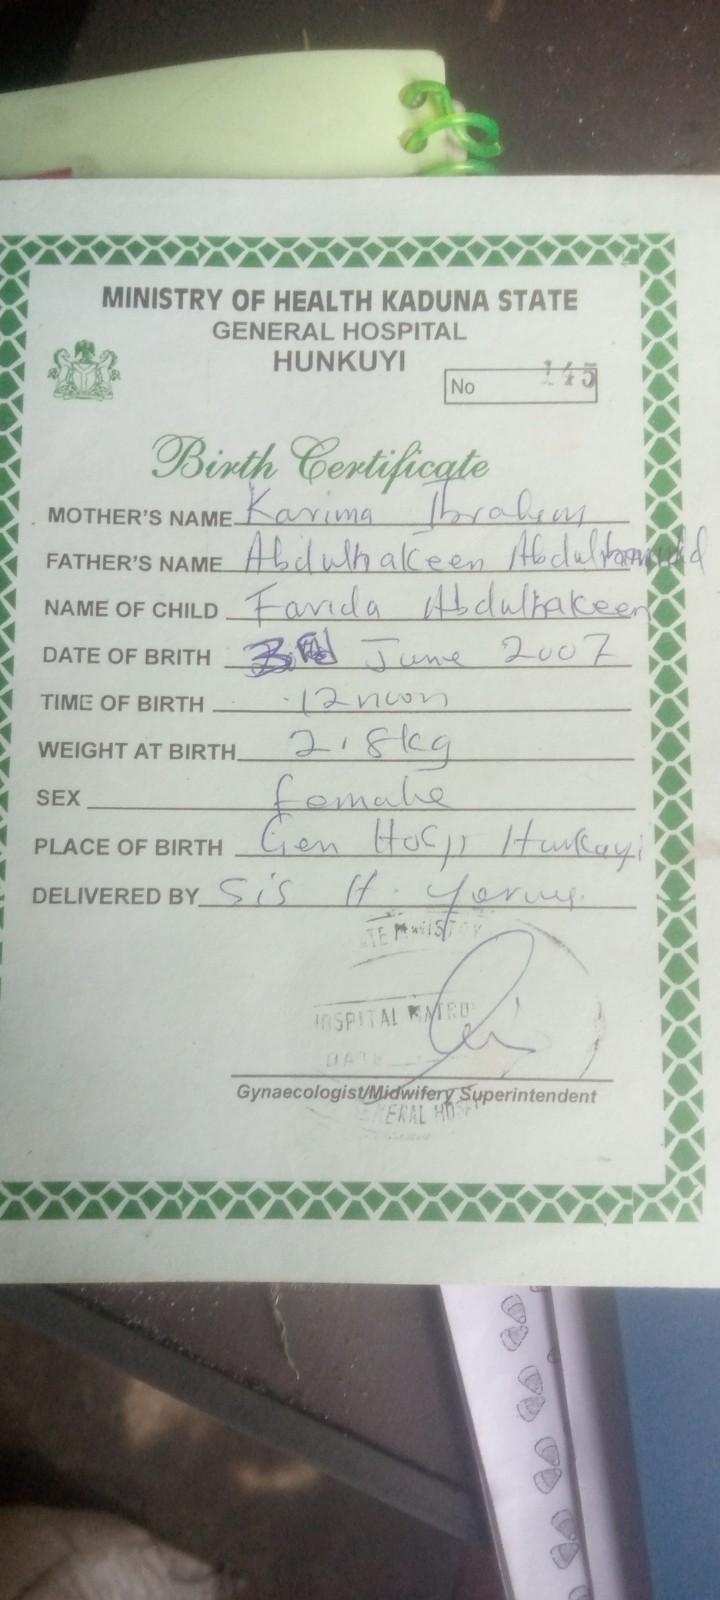 MINISTRY OF HEALTH KADUNA STATE
GENERAL HOSPITAL
HUNKUYI
No 145
Birth Certificate
MOTHER'S NAME Karima Ibrahim
FATHER'S NAME Abdulhakeen
NAME OF CHILD Farida Abdulhakeen
DATE OF BRITH June 2007
TIME OF BIRTH 12noon
WEIGHT AT BIRTH 2.8kg
SEX female
PLACE OF BIRTH Gen Hosp Hunkuyi
DELIVERED BY Sis H.
HOSPITAL MATRO
DATE
Gynaecologist/Midwifery Superintendent